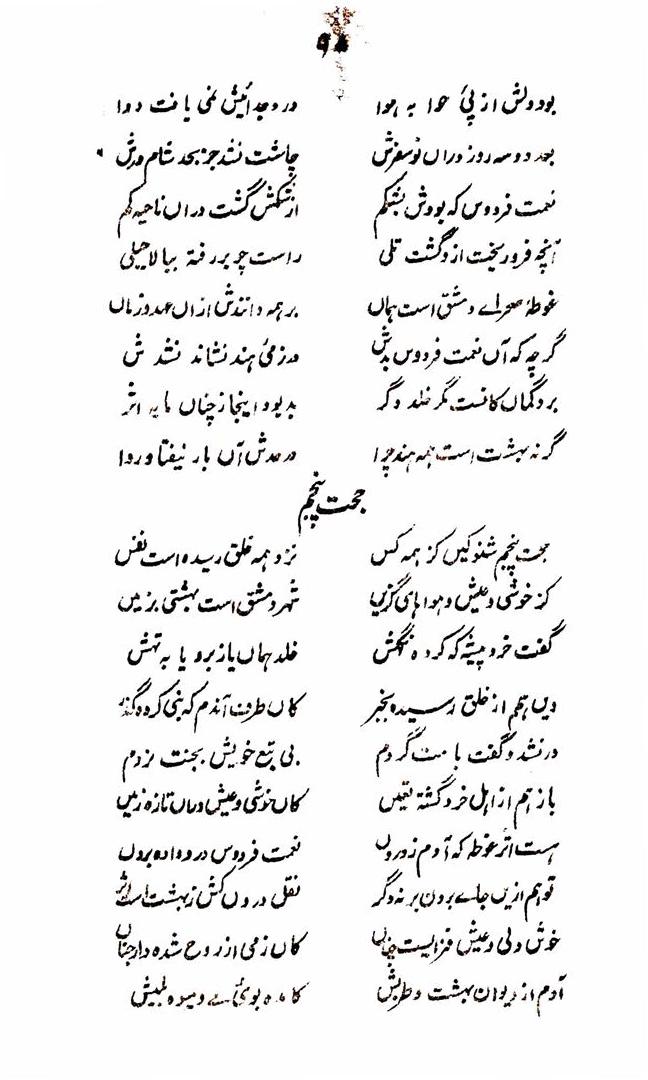 ۹۸
بود دلش از پئ حوا به هوا در جدائیش نمی یافت دوا
بعد دو سه روز دران نو سفرش چاشت نشد جز بحد شام درش
نعمت فردوس که بودش بشکم از شکمش گشت دران ناحیه کم
آنچه فرو ریخت ازو گشت تلی راست چو بر رفته ببالا جبلی
غوطۀ صحراے دمشق است همان بر همه دانندش ازان عهد و زمان
گرچه که آن نعمت فردوس بدش در زمئ هند نشاند نشدش
برد گمان کانست مگر خلد دگر بد بود اینجا ز چنان مایه اثر
گر نه بهشت است همه هند چرا در حدش آن بار نیفتاد روا
حجت پنجم
حجت پنجم شنو کین کز همه کس نزد همه خلق رسیده است نفس
کز خوشی و عیش و هوا های گزین شهر دمشق است بهشتی بزمین
گفت خرد میشه که کرده نگهش خلد همان یاز برو یا به تهش
دین هم از خلق رسیده بخبر کان طرف آندم که نبی کرده گذر
در نشد و گفت با مت گردم بی تبع خویش بجنت نزدم
باز هم از اهل خرد گشته یقین کان خوشی و عیش دران تازه زمین
هست اثر غوطه که آدم ز درون نعمت فردوس درو داده برون
تو هم ازین جاے برون بر نه دگر نقل درون کش ز بهشت است اثر
خوش دلی و عیش فزائیست چنان کان زمی از روح شده دار جنان
آدم از دیوان بهشت و طربش کامده بوئ مے و میوه لبش